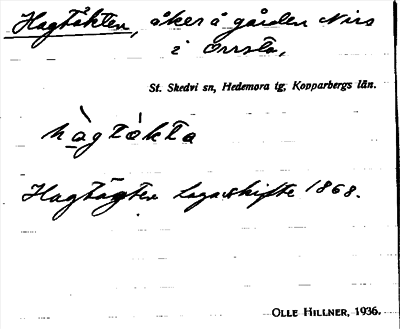 Hagtäkten, åker å gården Nirs
i Orrsta,
St. Skedvi sn, Hedemora tg, Kopparbergs län.
hàgtàkta
Hagtägten Lagaskifte 1868.
OLLE HILLNER, 1936.